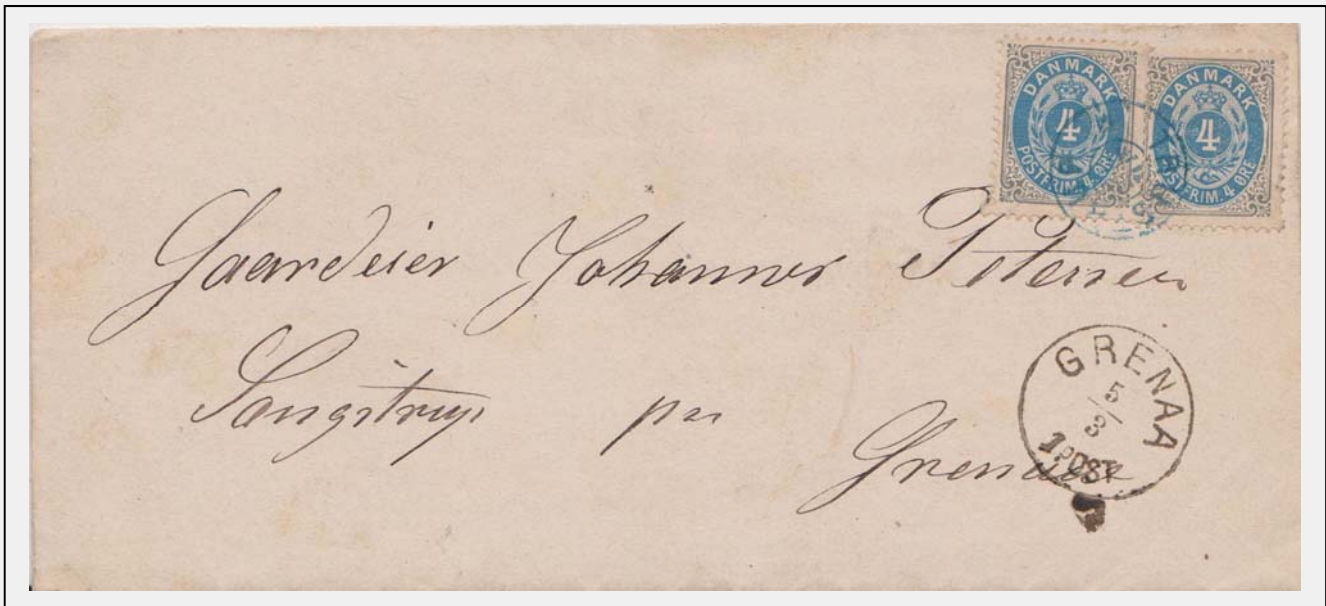 DANMARK
4
POSTFRIM. 4 ØRE
DANMARK
4
POSTFRIM. 4 ØRE
Gaardeier Johannes Petersen
Sangstrup pr
Grenaa
GRENAA
5
3
1 POST